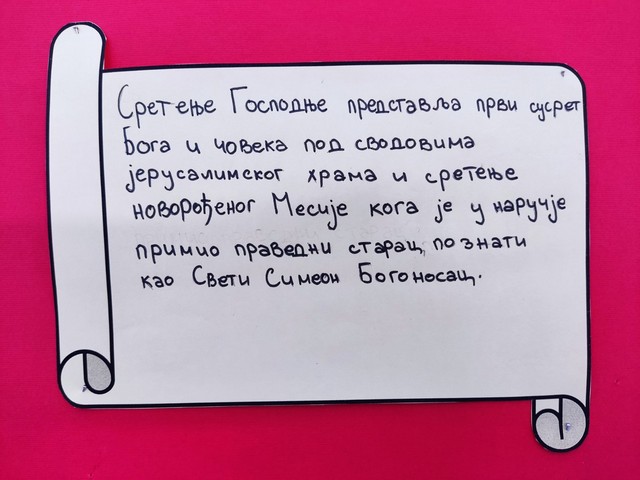 Сретење Господње представља први сусрет
Бога и човека под сводовима
јерусалимског храма и сретење
новорођеног Месије кога је у наручје
примио праведни старац, познати
као Свети Симеон Богоносац.